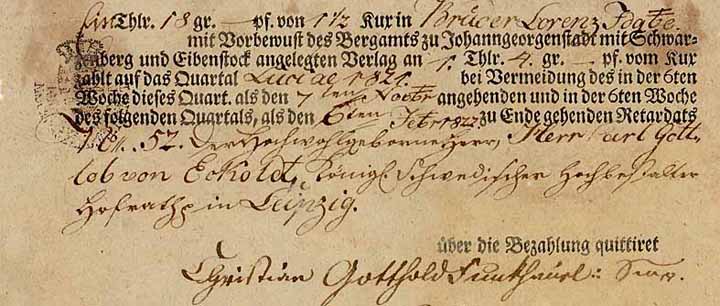 Ein Thlr. 18 gr. — pf. von 1 1/2 Kux in Brüder Lorenz Fdgbe.
mit Vorbewust des Bergamts zu Johanngeorgenstadt mit Schwar-
zenberg und Eibenstock angelegten Verlag an 1. Thlr. 4. gr. — pf. vom Kux
zahlt auf das Quartal Luciae 1821. bei Vermeidung des in der 6ten
Woche dieses Quart. als den 7ten angehenden und in der 6ten Woche
des folgenden Quartals, als den 6ten Febr 1822 zu Ende gehenden Retardats
52. Der Hochwohlgeborne Herr, Herr Karl Gott
lob von Eckoldt, Königl. Schwedischer Hochbestalter
Hofrath in Leipzig.
über die Bezahlung quittiret
Christian Gotthold